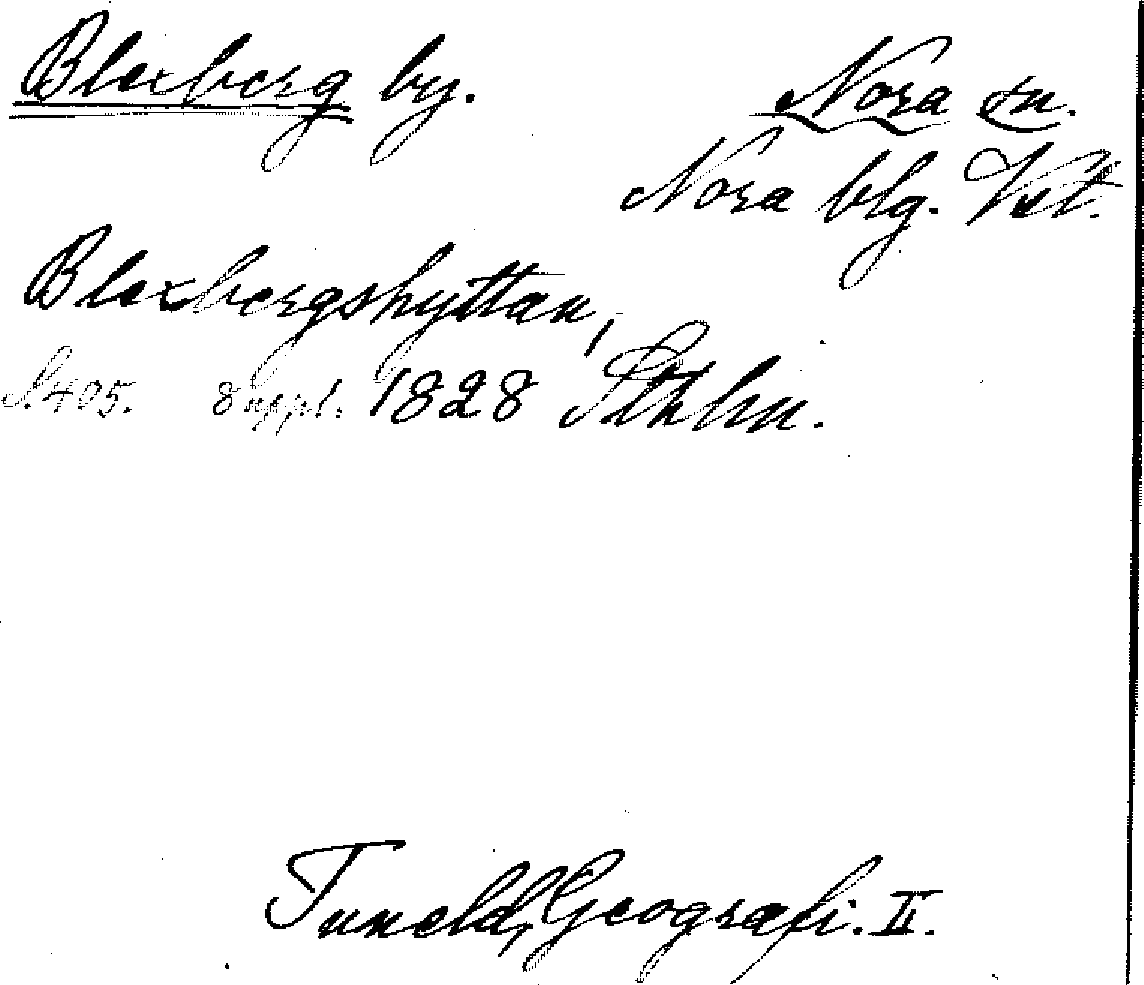 Blexberg by.
Nora sn.
Nora blg. Vstl.
Blexbergshyttan,
S. 405. 8 uppl. 1828 Sthlm.
Tuneld, Geografi. II.